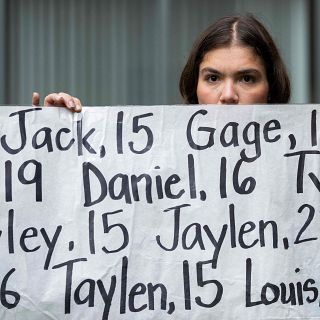 Jack, 15 Gage, 1
19 Daniel, 16 Ty
ley, 15 Jaylen, 2
6 Taylen, 15 Louis,